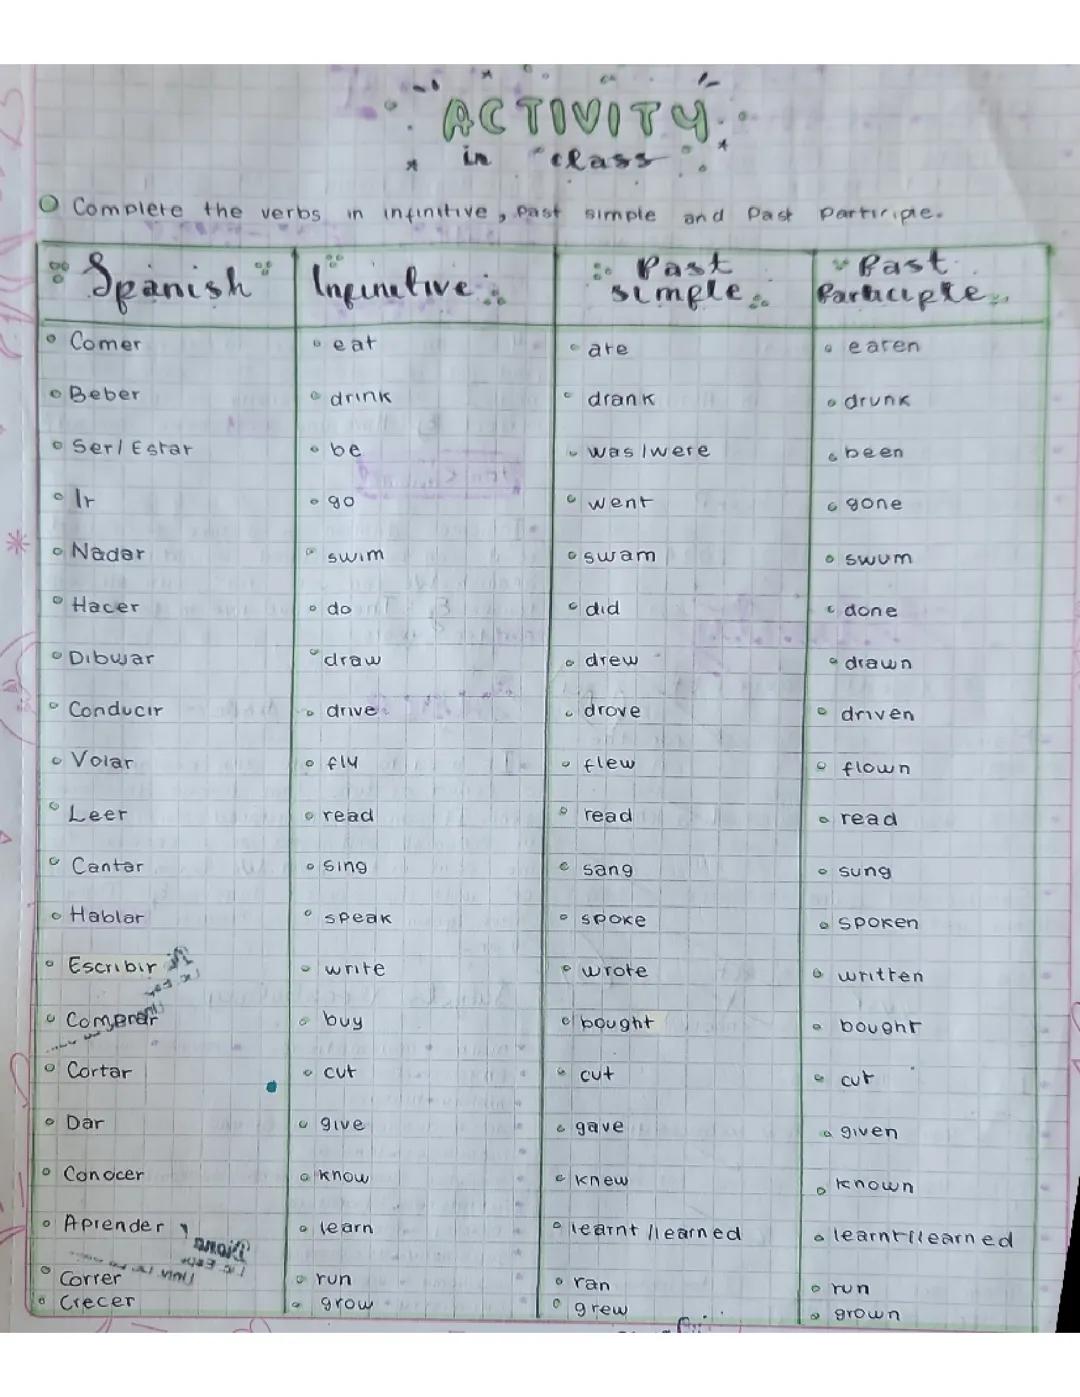 ACTIVITY
in class
Complete the verbs in infinitive, past simple and past participle.
Spanish Infinitive Past simple Past Participle
Comer eat ate eaten
Beber drink drank drunk
Ser/Estar be was/were been
Ir go went gone
Nadar swim swam swum
Hacer do did done
Dibujar draw drew drawn
Conducir drive drove driven
Volar fly flew flown
Leer read read read
Cantar sing sang sung
Hablar speak spoke spoken
Escribir write wrote written
Comprar buy bought bought
Cortar cut cut cut
Dar give gave given
Conocer know knew known
Aprender learn learnt/learned learnt/learned
Correr run ran run
Crecer grow grew grown